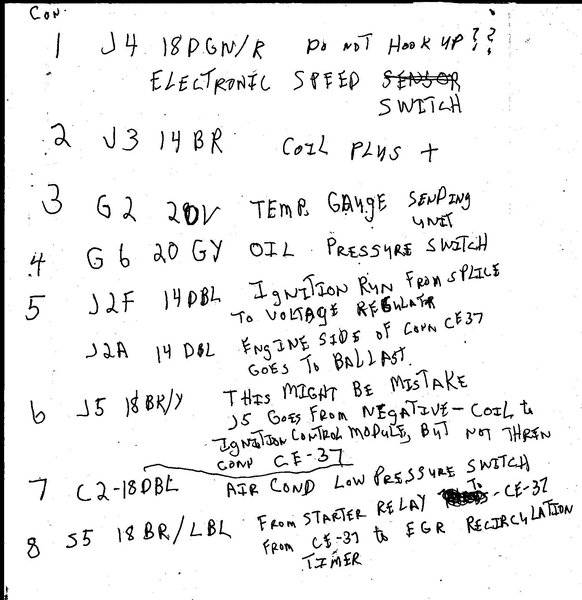 CON.
1 J4 18DGN/R DO NOT HOOK UP??
ELECTRONIC SPEED SENSOR
SWITCH
2 J3 14BR COIL PLUS +
3 G2 20V TEMP. GAUGE SENDING
UNIT
4 G6 20GY OIL PRESSURE SWITCH
5 J2F 14DBL IGNITION RUN FROM SPLICE
TO VOLTAGE REGULATOR
J2A 14 DBL ENGINE SIDE OF CONN CE37
GOES TO BALLAST.
6 J5 18BR/Y THIS MIGHT BE MISTAKE
J5 GOES FROM NEGATIVE - COIL to
IGNITION CONTROL MODULE, BUT NOT THREN
CONN CE-37
7 C2-18DBL AIR COND LOW PRESSURE SWITCH
8 S5 18BR/LBL FROM STARTER RELAY TO - CE-37
FROM CE-37 to EGR RECIRCULATION
TIMER